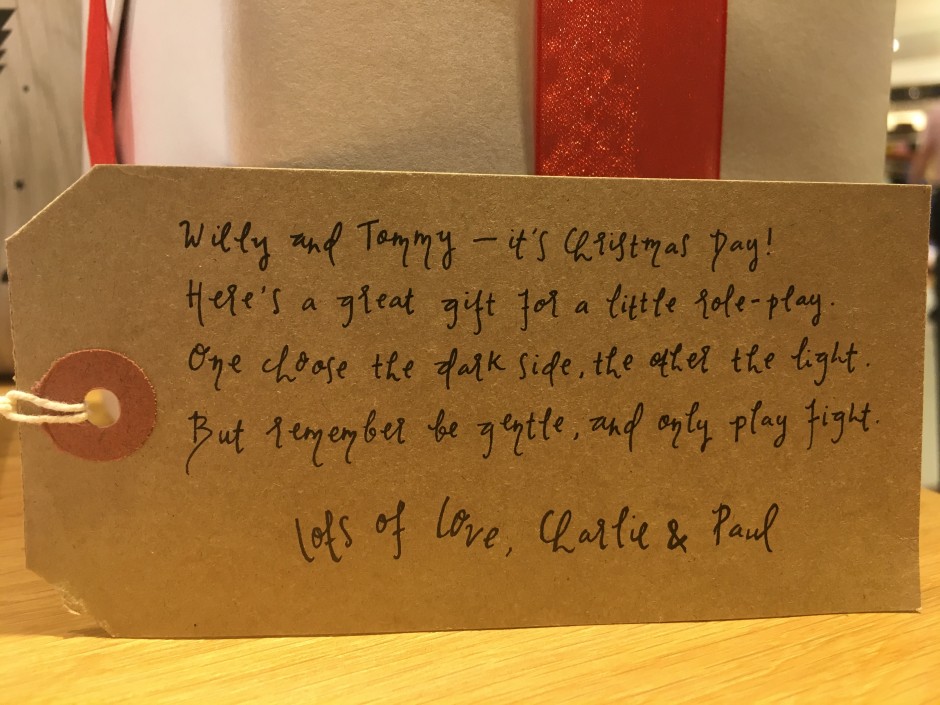 Willy and Tommy – it's Christmas Day!
Here's a great gift for a little role-play.
One choose the dark side, the other the light.
But remember be gentle, and only play fight.
Lots of love, Charlie & Paul